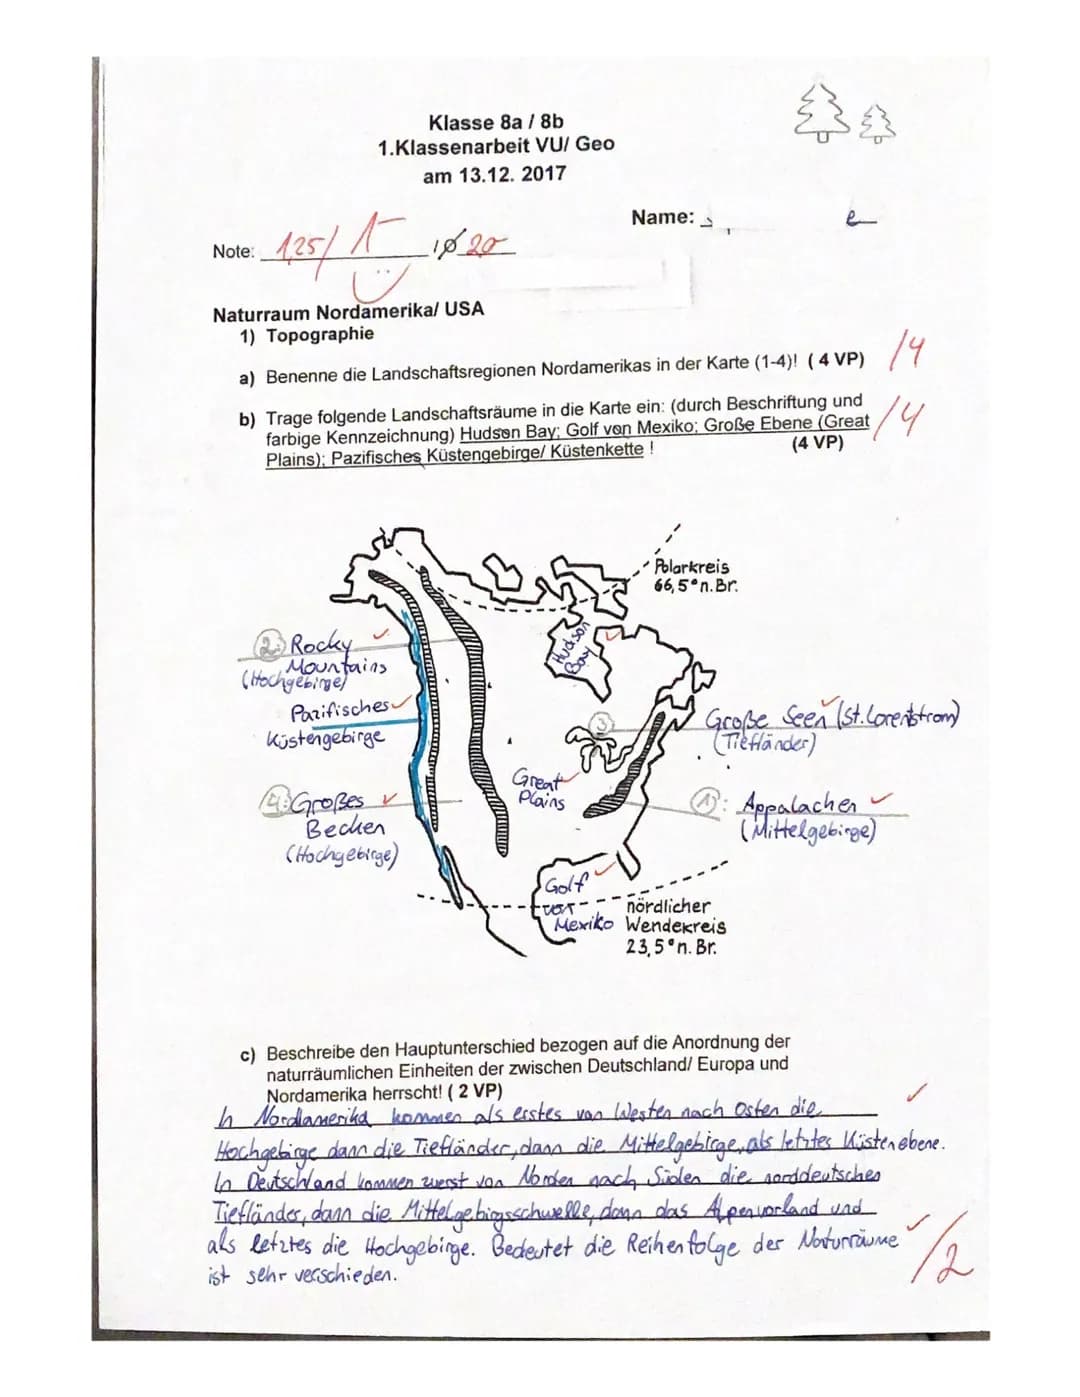 Klasse 8a / 8b
1.Klassenarbeit VU/ Geo
am 13.12. 2017
Name:
Note: 1,25/ 1-
Naturraum Nordamerika/ USA
1) Topographie
a) Benenne die Landschaftsregionen Nordamerikas in der Karte (1-4)! ( 4 VP) /4
b) Trage folgende Landschaftsräume in die Karte ein: (durch Beschriftung und
farbige Kennzeichnung) Hudson Bay; Golf von Mexiko; Große Ebene (Great /4
Plains); Pazifisches Küstengebirge/ Küstenkette ! (4 VP)
Polarkreis
66,5°n.Br.
Hudson
Bay
2: Rocky
Mountains
(Hochgebirge)
Pazifisches
Küstengebirge
3
Große Seen (St. Lorentstrom)
(Tiefländer)
Great
Plains
4: Großes
Becken
(Hochgebirge)
1: Appalachen
(Mittelgebirge)
Golf
von
Mexiko
nördlicher
Wendekreis
23,5°n. Br.
c) Beschreibe den Hauptunterschied bezogen auf die Anordnung der
naturräumlichen Einheiten der zwischen Deutschland/ Europa und
Nordamerika herrscht! ( 2 VP)
In Nordamerika kommen als erstes von Westen nach Osten die
Hochgebirge dann die Tiefländer, dann die Mittelgebirge, als letztes Küstenebene.
In Deutschland kommen zuerst von Norden nach Süden die norddeutschen
Tiefländer, dann die Mittelgebirgsschwelle, dann das Alpenvorland und
als letztes die Hochgebirge. Bedeutet die Reihenfolge der Naturräume
ist sehr verschieden. /2